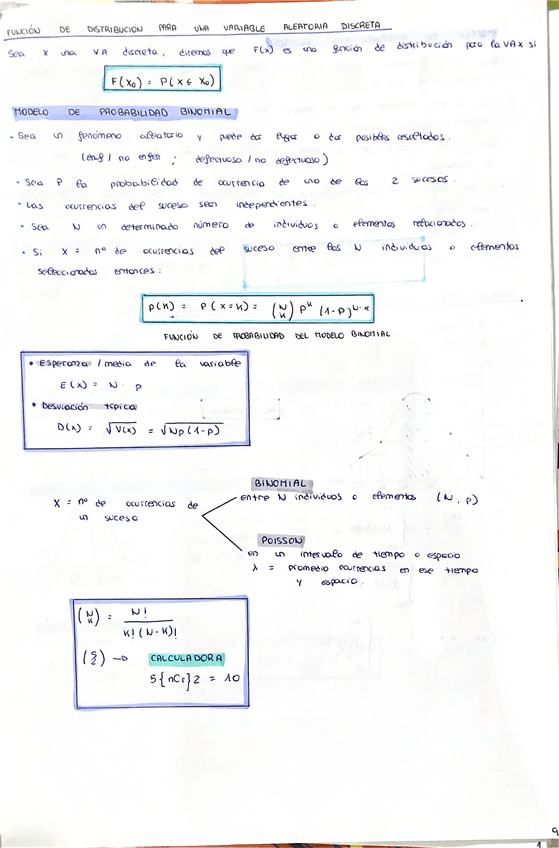 FUNCIÓN DE DISTRIBUCIÓN PARA UNA VARIABLE ALEATORIA DISCRETA
Sea X una VA discreta, diremos que F(x) es una función de distribución para la VA x si
F(x₀) = P(x ≤ x₀)
MODELO DE PROBABILIDAD BINOMIAL
• Sea un fenómeno aleatorio y puede dar lugar a dos posibles resultados.
(enf / no enfer ; defectuoso / no defectuoso)
• Sea P la probabilidad de ocurrencia de uno de los 2 sucesos.
• Las ocurrencias del suceso sean independientes.
• Sea N un determinado número de individuos o elementos relacionados.
• Si X = nº de ocurrencias del suceso entre los N individuos o elementos
seleccionados entonces:
P(K) = P(x=K) = (N K) P^K (1-P)^N-K
FUNCIÓN DE PROBABILIDAD DEL MODELO BINOMIAL
• Esperanza / media de la variable
E(x) = N · p
• Desviación típica
D(x) = √V(x) = √Np(1-p)
BINOMIAL
X = nº de ocurrencias de un suceso
entre N individuos o elementos (N, p)
POISSON
en un intervalo de tiempo o espacio
λ = promedio ocurrencias en ese tiempo
y espacio.
(N K) = N! / K!(N-K)!
(5 2) → CALCULADORA
5{nCr}2 = 10